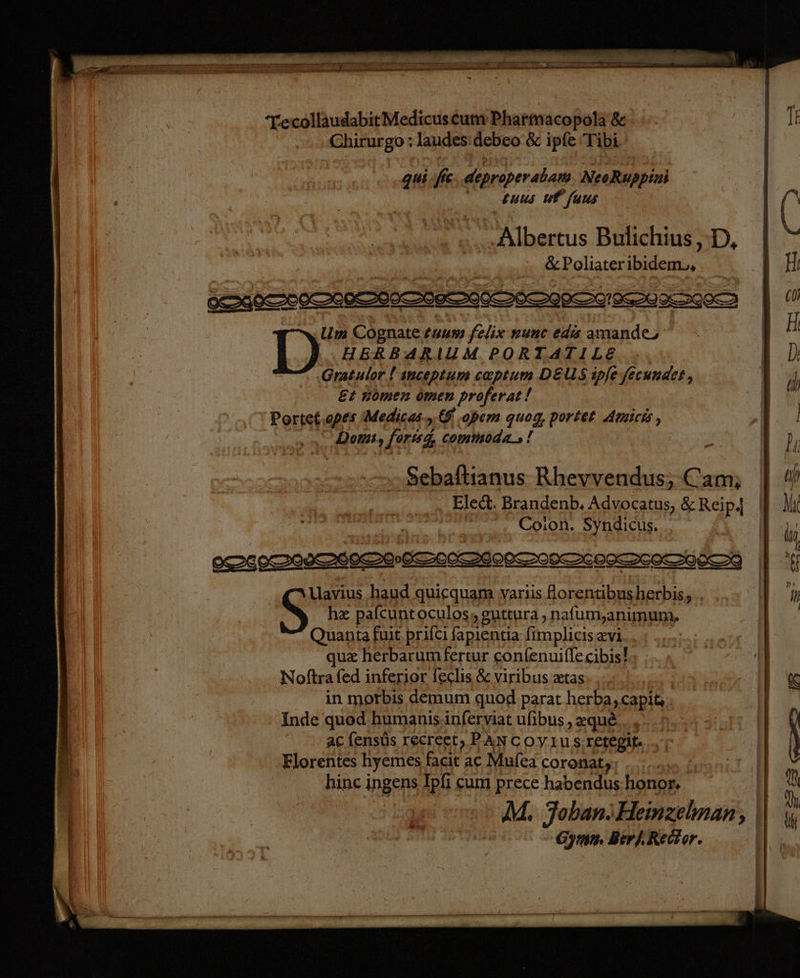 Tecollàudabit Medicus cum Pharmacopola &
Chirurgo : laudes debeo & ipſe Tibi
qui ſic deproperabam NeoRuppini
tuus uſq; ſuus
Albertus Bulichius, D,
& Poliater ibidem.,
DUm Cognate tuum felix nunc edis amande,
HERBARIUM PORTATILE
Gratulor ! inceptum cœptum DEUS ipſe fecundet,
Et nomen omen proferat !
Portet opes Medicas, & opem quoq, portet Amicis,
Domi, foriſq, commoda !
Sebaſtianus Rhevvendus, Cam,
Elect. Brandenb. Advocatus, & Reip.
Colon. Syndicus.
SUavius haud quicquam variis florentibus herbis,
hæ paſcunt oculos, guttura, naſum, animum.
Quanta fuit priſci ſapientia ſimplicis ævi
quæ herbarum fertur conſenuiſſe cibis!
Noſtra ſed inferior ſeclis & viribus ætas
in morbis demum quod parat herba, capit,
Inde quod humanis inſerviat uſibus, æquè
ac ſensûs recreet, PANCOVIUS retegit.
Florentes hyemes facit ac Muſea coronat,
hinc ingens Ipſi cum prece habendus honor.
M. Johan. Heinzelman,
Gymn. Berl. Rector.